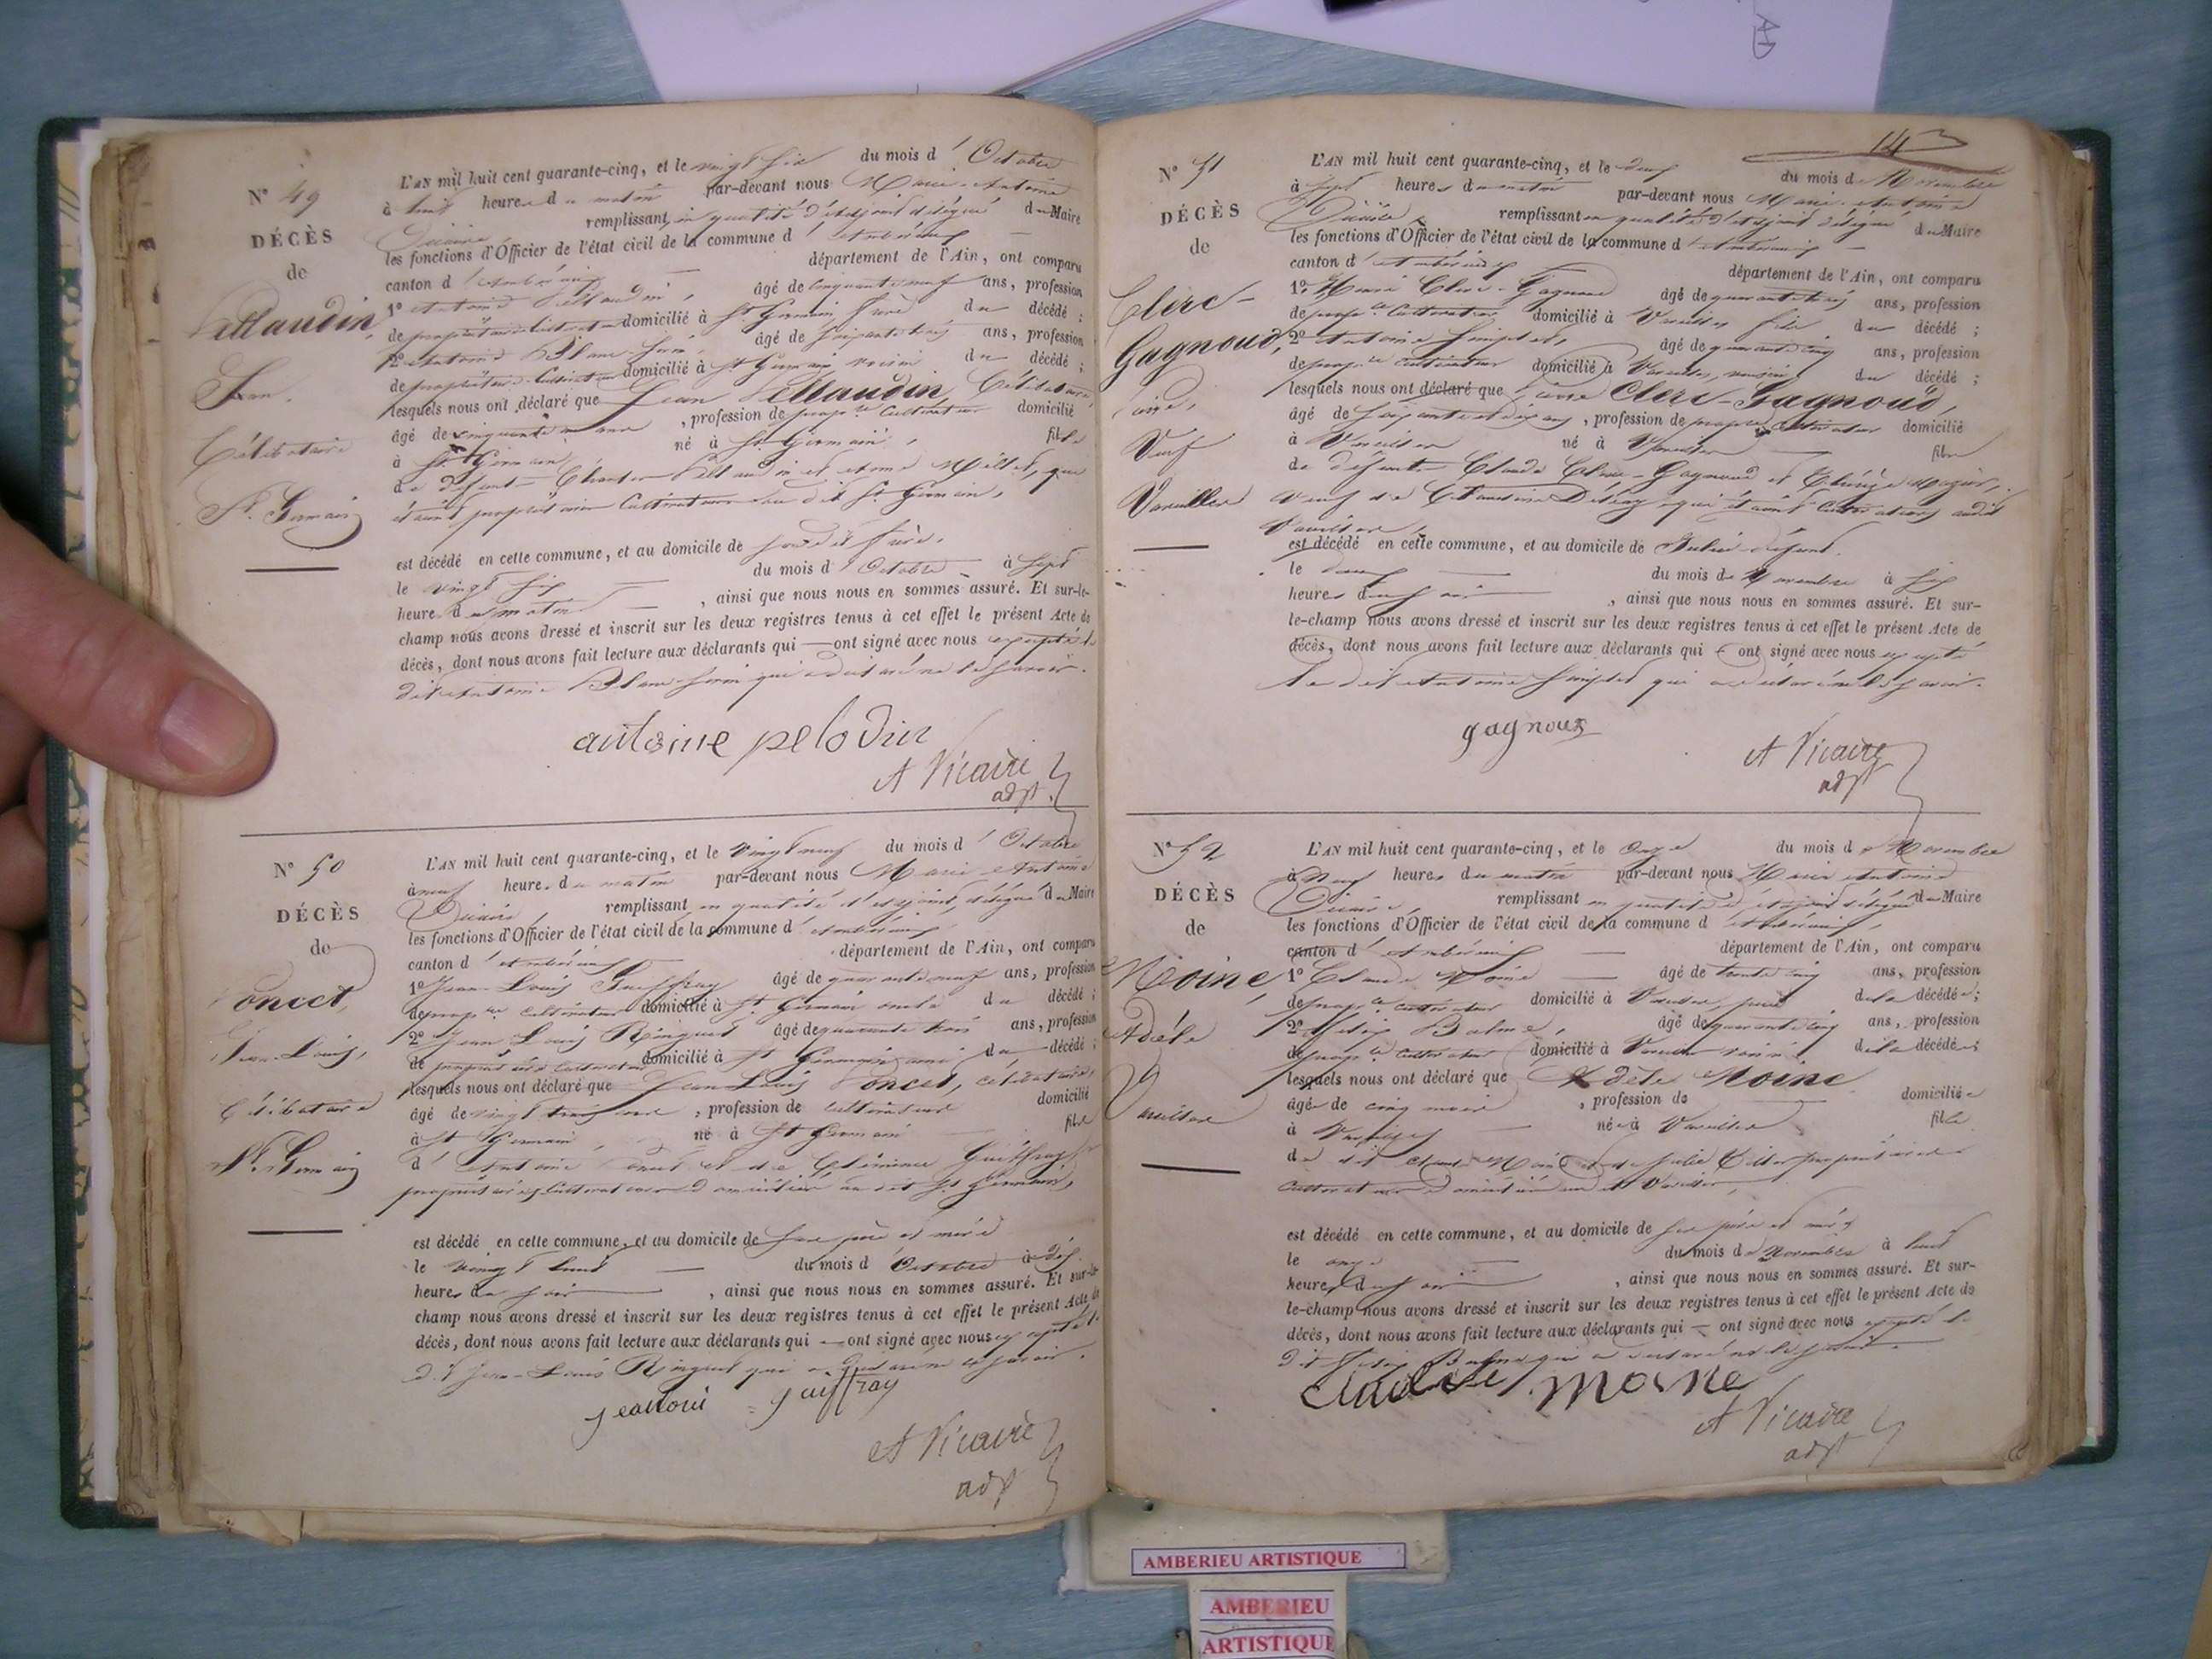 N° 49
DÉCÈS
de
Pellaudin,
Jean.
Célibataire
St. Germain
L'AN mil huit cent quarante-cinq, et le vingt six du mois d' Octobre
à huit heures du matin par-devant nous Marie-Antoine
Vicaire remplissant, en qualité d'adjoint délégué du Maire
les fonctions d'Officier de l'état civil de la commune d' Ambérieux
canton d' Ambérieux département de l'Ain, ont comparu
1° Antoine Pellaudin, âgé de cinquante neuf ans, profession
de propriétaire cultivateur domicilié à St Germain frère du décédé ;
2° Antoine âgé de soixante trois ans, profession
de propriétaire cultivateur domicilié à St Germain voisin du décédé ;
lesquels nous ont déclaré que Jean Pellaudin Célibataire,
âgé de cinquante un ans , profession de prop.re Cultivateur domicilié
à St. Germain né à St. Germain, fils
de défunts Pellaudin et Anne Millet, qui
étaient propriétaires Cultivateurs au dit St. Germain,
est décédé en cette commune, et au domicile de son dit frère.
le vingt six du mois d' Octobre à sept
heures du matin , ainsi que nous nous en sommes assuré. Et sur-le-
champ nous avons dressé et inscrit sur les deux registres tenus à cet effet le présent Acte de
décès, dont nous avons fait lecture aux déclarants qui — ont signé avec nous excepté le
dit Antoine qui a déclaré ne le savoir.
antoine pelodin
A Vicaire
adjt
N° 50
DÉCÈS
de
Poncet,
Jean-Louis,
Célibataire
St. Germain
L'AN mil huit cent quarante-cinq, et le vingt neuf du mois d' Octobre
à neuf heures du matin par-devant nous Marie Antoine
Vicaire remplissant en qualité d'adjoint, délégué du Maire
les fonctions d'Officier de l'état civil de la commune d' Ambérieux
canton d' Ambérieux département de l'Ain, ont comparu
1° Jean-Louis Guiffray âgé de quarante neuf ans, profession
de prop.re cultivateur domicilié à St. Germain oncle du décédé ;
2° Jean Louis Ringuet âgé de quarante trois ans, profession
de propriétaire cultivateur domicilié à St Germain ami du décédé ;
lesquels nous ont déclaré que Jean-Louis Poncet, célibataire,
âgé de vingt ans , profession de cultivateur domicilié
à St Germain né à St Germain fils
d' Antoine Poncet et de Clémence Guiffray
propriétaires cultivateurs domiciliés au dit St. Germain,
est décédé en cette commune, et au domicile de ses père et mère
le vingt huit du mois d' Octobre à dix
heures du soir , ainsi que nous nous en sommes assuré. Et sur-le-
champ nous avons dressé et inscrit sur les deux registres tenus à cet effet le présent Acte de
décès, dont nous avons fait lecture aux déclarants qui — ont signé avec nous excepté le
dit Jean-Louis Ringuet qui a déclaré ne le savoir.
jean loui guiffray
A Vicaire
adjt
143
N° 51
DÉCÈS
de
Clerc-
Gagnoud,
Veuf
Vareilles
L'AN mil huit cent quarante-cinq, et le deux du mois de Novembre
à sept heures du matin par-devant nous Marie-Antoine
Vicaire remplissant en qualité d'adjoint délégué du Maire
les fonctions d'Officier de l'état civil de la commune d' Ambérieux
canton d' Ambérieux département de l'Ain, ont comparu
1° Clerc-Gagnoud âgé de quarante trois ans, profession
de prop.re Cultivateur domicilié à Vareilles fils du décédé ;
2° Antoine Simplet, âgé de quarante cinq ans, profession
de prop.re cultivateur domicilié à Vareilles, voisin du décédé ;
lesquels nous ont déclaré que Clerc-Gagnoud,
âgé de soixante et dix ans , profession de prop.re Cultivateur domicilié
à Vareilles né à Vareilles fils
de défunts Claude Clerc-Gagnoud et
veuf de Claudine qui étaient Cultivateurs audit
Vareilles
est décédé en cette commune, et au domicile de
le deux du mois de Novembre à six
heures , ainsi que nous nous en sommes assuré. Et sur-
le-champ nous avons dressé et inscrit sur les deux registres tenus à cet effet le présent Acte de
décès, dont nous avons fait lecture aux déclarants qui ont signé avec nous excepté
le dit Antoine Simplet qui a déclaré ne le savoir.
gagnoux
A Vicaire
adjt
N° 52
DÉCÈS
de
Moine,
Adèle
Vareilles
L'AN mil huit cent quarante-cinq, et le onze du mois de Novembre
à neuf heures du matin par-devant nous Marie Antoine
Vicaire, remplissant en qualité d'adjoint délégué du Maire
les fonctions d'Officier de l'état civil de la commune d' Ambérieux,
canton d' Ambérieux département de l'Ain, ont comparu
1° Claude Moine âgé de trente cinq ans, profession
de prop.re cultivateur domicilié à Vareilles, père de la décédée ;
2° Balme, âgé de quarante cinq ans, profession
de prop.re cultivateur domicilié à Vareilles voisin de la décédée ;
lesquels nous ont déclaré que Adèle Moine
âgée de cinq mois , profession de domiciliée
à Vareilles née à Vareilles fille
de dit Claude Moine et de Julie propriétaires
cultivateurs domiciliés au dit Vareilles,
est décédé en cette commune, et au domicile de ses père et mère
le onze du mois de Novembre à huit
heures , ainsi que nous nous en sommes assuré. Et sur-
le-champ nous avons dressé et inscrit sur les deux registres tenus à cet effet le présent Acte de
décès, dont nous avons fait lecture aux déclarants qui — ont signé avec nous excepté le
dit Balme qui a déclaré ne le savoir.
Claude moine
A Vicaire
adjt
AMBERIEU ARTISTIQUE
AMBERIEU
ARTISTIQUE
AD